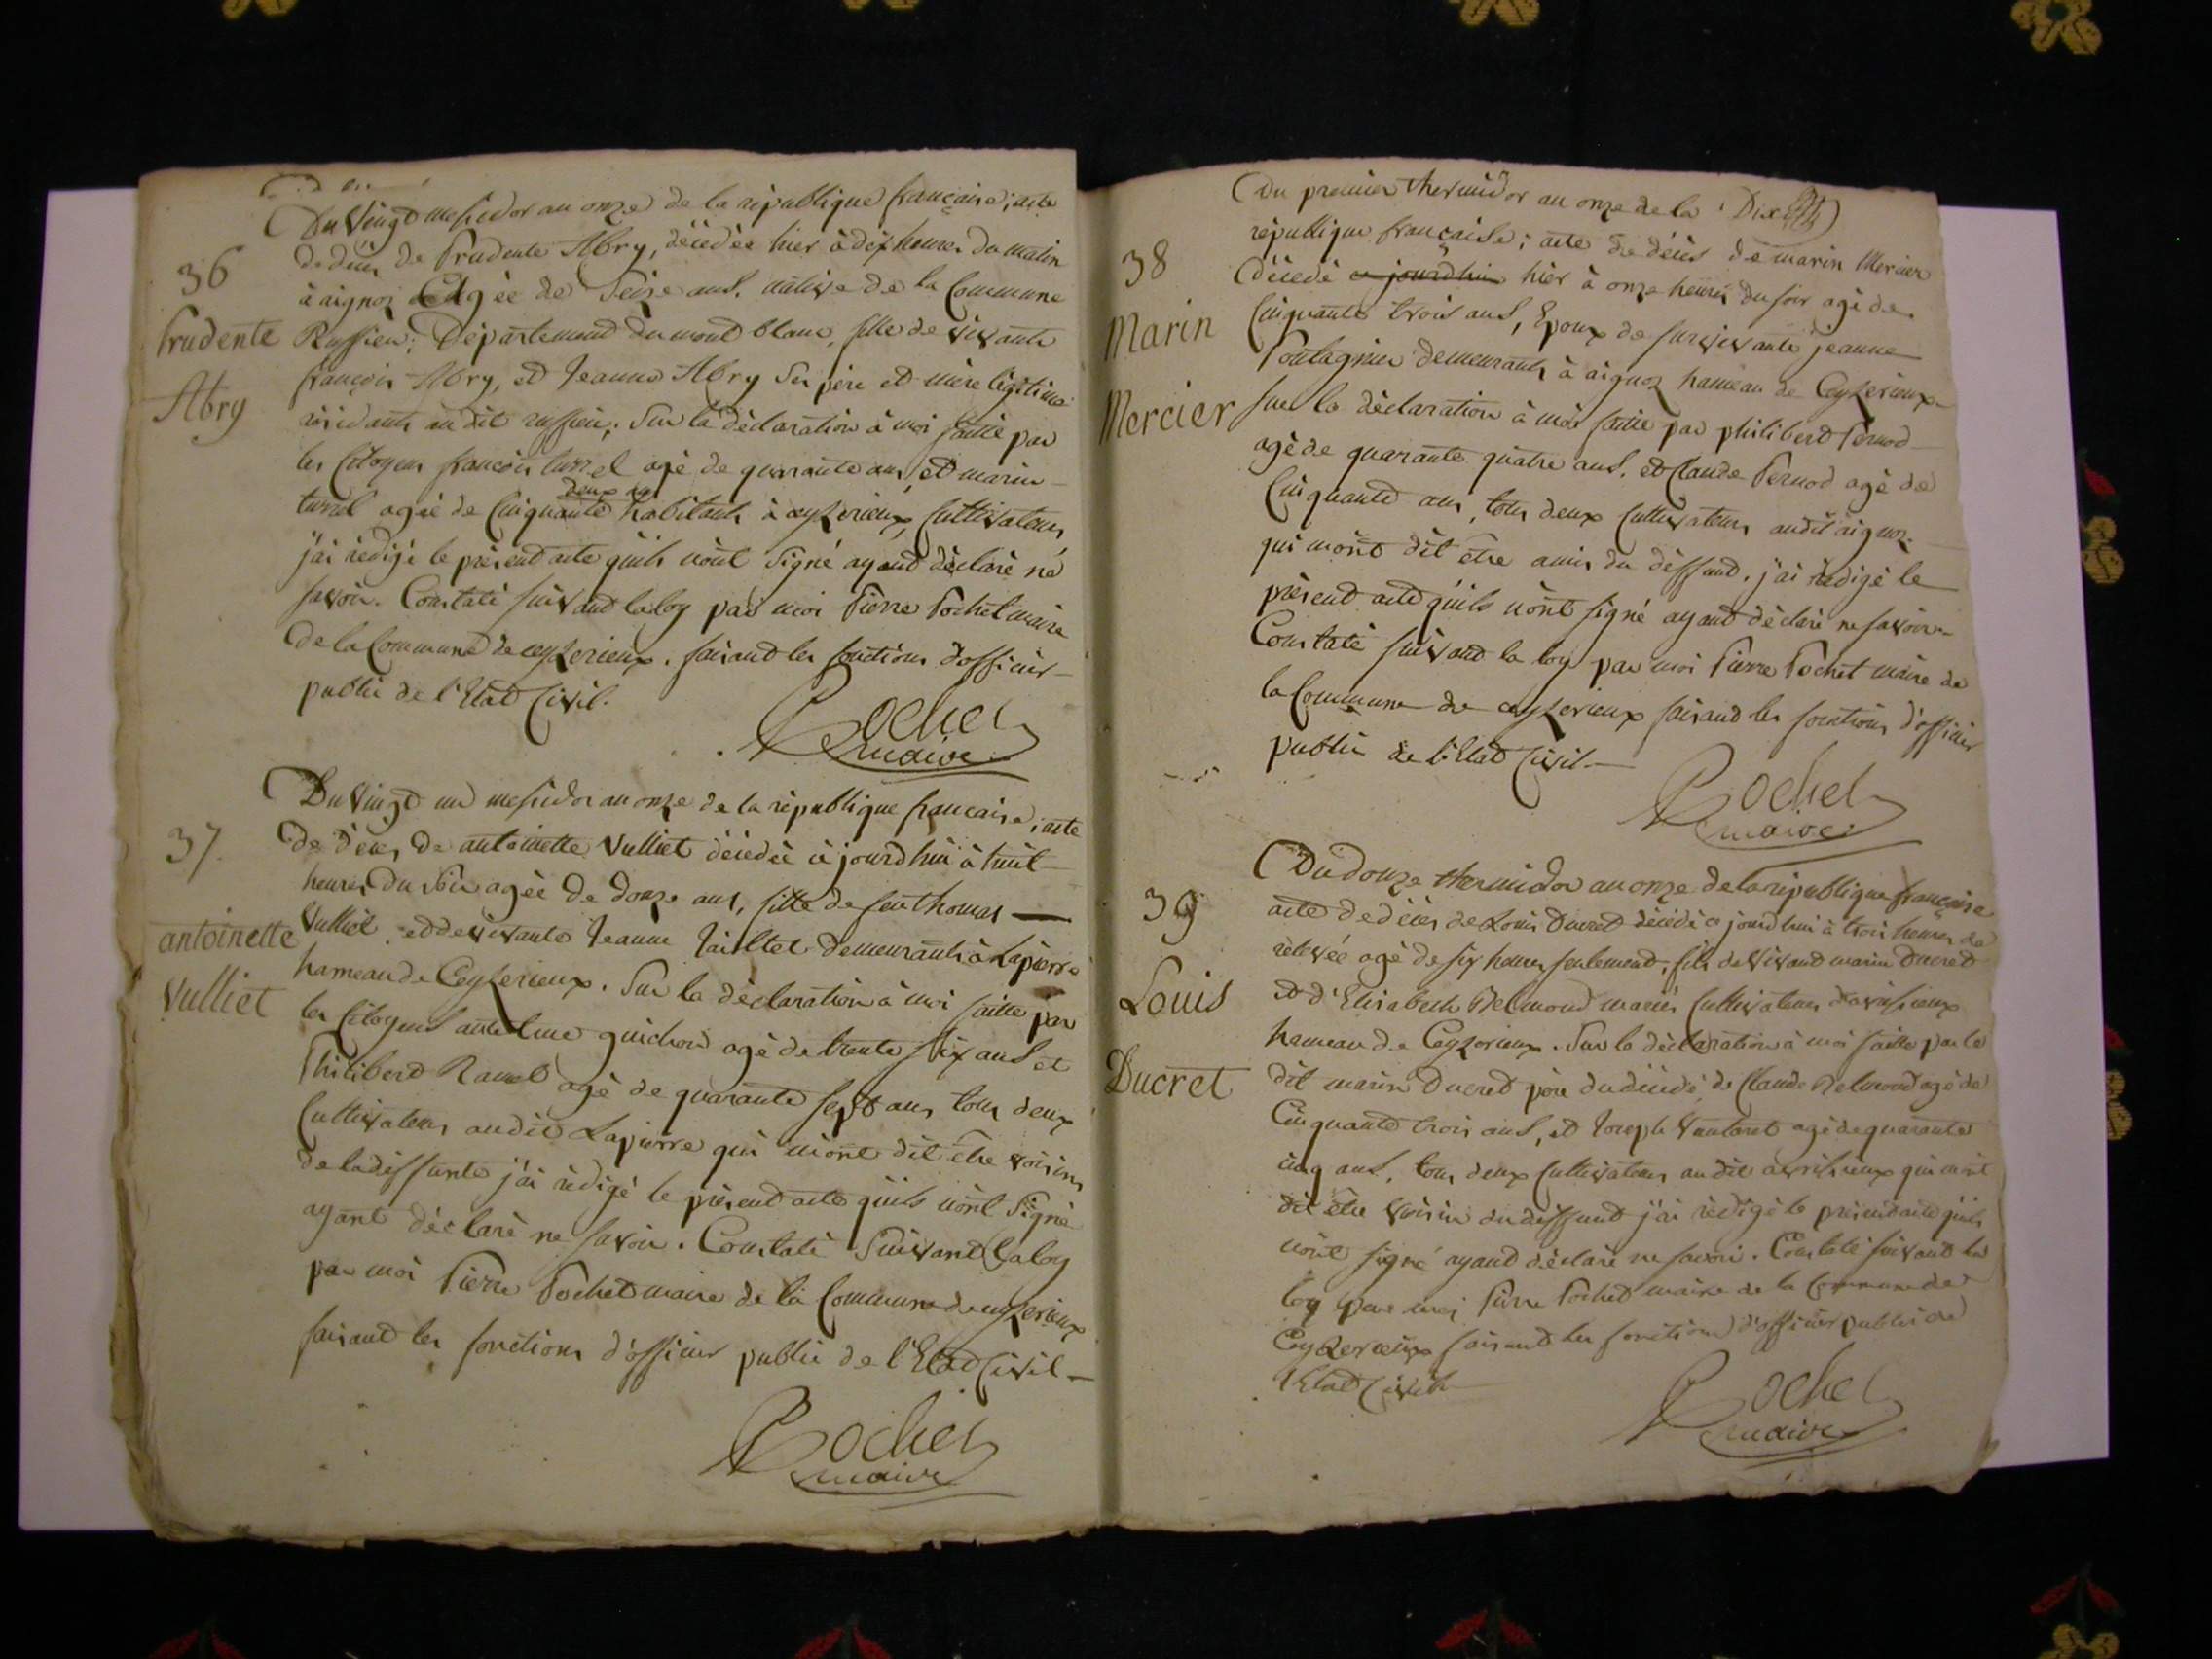 Du Vingt messidor an onze de la république française; acte
de décès de Prudente Abry, décédée hier à dix heures du matin
36
à aignoz Agée de Seize ans, native de la Commune
Prudente
Ruffieu; Département du mont blanc, fille de vivants
Abry
françois Abry, et Jeanne Abry Ses père et mère légitime
résidants au dit ruffieu; Sur la déclaration à moi faitte par
les Citoyens françois turrel agé de quarante ans, et marin
deux
turrel agée de Cinquante habitants à ceyzerieux, Cultivateurs,
j'ai rédigé le présent acte qu'ils n'ont Signé ayant déclaré ne
savoir. Constaté suivant la loy par moi Pierre Pochet maire
de la Commune de ceyzerieux, faisant les fonctions d'officier
public de l'Etat Civil.
Pochet
maire
Du Vingt un messidor an onze de la république française; acte
37.
de décès de antoinette Vulliet décédée ce jourdhui à huit
heures du Soir agée de douze ans, fille de feu thomas
antoinette
Vulliet et de vivante Jeanne demeurants à Lapierre
Vulliet
hameau de Ceyzerieux. Sur la déclaration à moi faitte par
les Citoyens antelme guichon agé de trente six ans et
Philibert Ravet agé de quarante sept ans tous deux
Cultivateurs audit Lapierre qui m'ont dit être voisins
de la deffunte j'ai rédigé le présent acte qu'ils n'ont Signé
ayant déclaré ne savoir. Constaté Suivant la loy
par moi Pierre Pochet maire de la Commune de ceyzerieux
faisant les fonctions d'officier public de l'Etat Civil
Pochet
maire
Du premier thermidor an onze de la Dix
république française; acte de décès de marin Mercier
38
décédé ce jourdhui hier à onze heures du soir agé de
Marin
Cinquante trois ans, Epoux de survivante jeanne
demeurants à aignoz hameau de Ceyzerieux
Mercier
sur la déclaration à moi faitte par philibert Pernod
agé de quarante quatre ans, et Claude Pernod agé de
Cinquante ans, tous deux Cultivateurs audit aignoz
qui m'ont dit être amis du deffunt, j'ai rédigé le
présent acte qu'ils n'ont signé ayant déclaré ne savoir
Constaté suivant la loy par moi Pierre Pochet maire de
la Commune de ceyzerieux faisant les fonctions d'officier
public de l'Etat Civil
Pochet
maire
Du douze thermidor an onze de la république française
39
acte de décès de Louis Ducret décédé ce jourdhui à trois heures de
relevée agé de six heures seulement, fils de Vivant marin Ducret
Louis
et d'Elisabeth Belmond mariés Cultivateurs
hameau de Ceyzerieux. Sur la déclaration à moi faitte par le
Ducret
dit marin Ducret père du décédé, de Claude Belmond agé de
Cinquante trois ans, et Joseph agé de quarante
cinq ans, tous deux Cultivateurs au dit qui m'ont
dit être voisin du deffunt j'ai rédigé le présent acte qu'ils
n'ont signé ayant déclaré ne savoir. Constaté suivant la
loy par moi Pierre Pochet maire de la Commune de
Ceyzerieux faisant les fonctions d'officier public de
l'Etat Civil
Pochet
maire